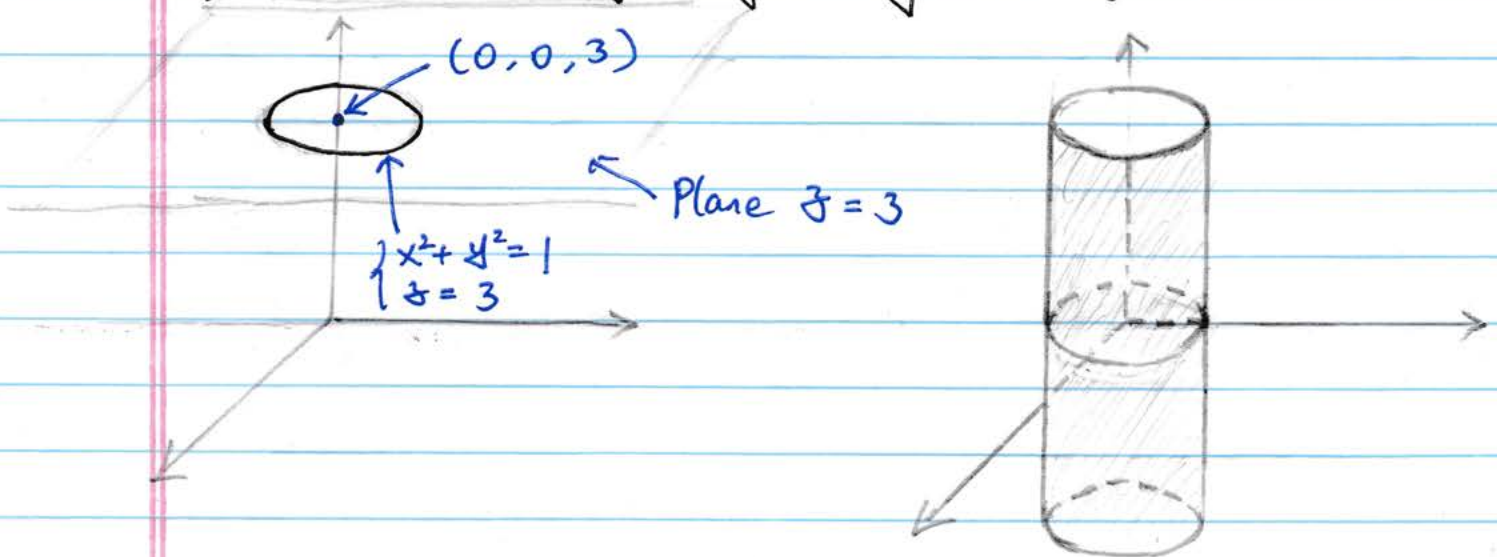 (0, 0, 3)
Plane z = 3
{ x² + y² = 1
z = 3